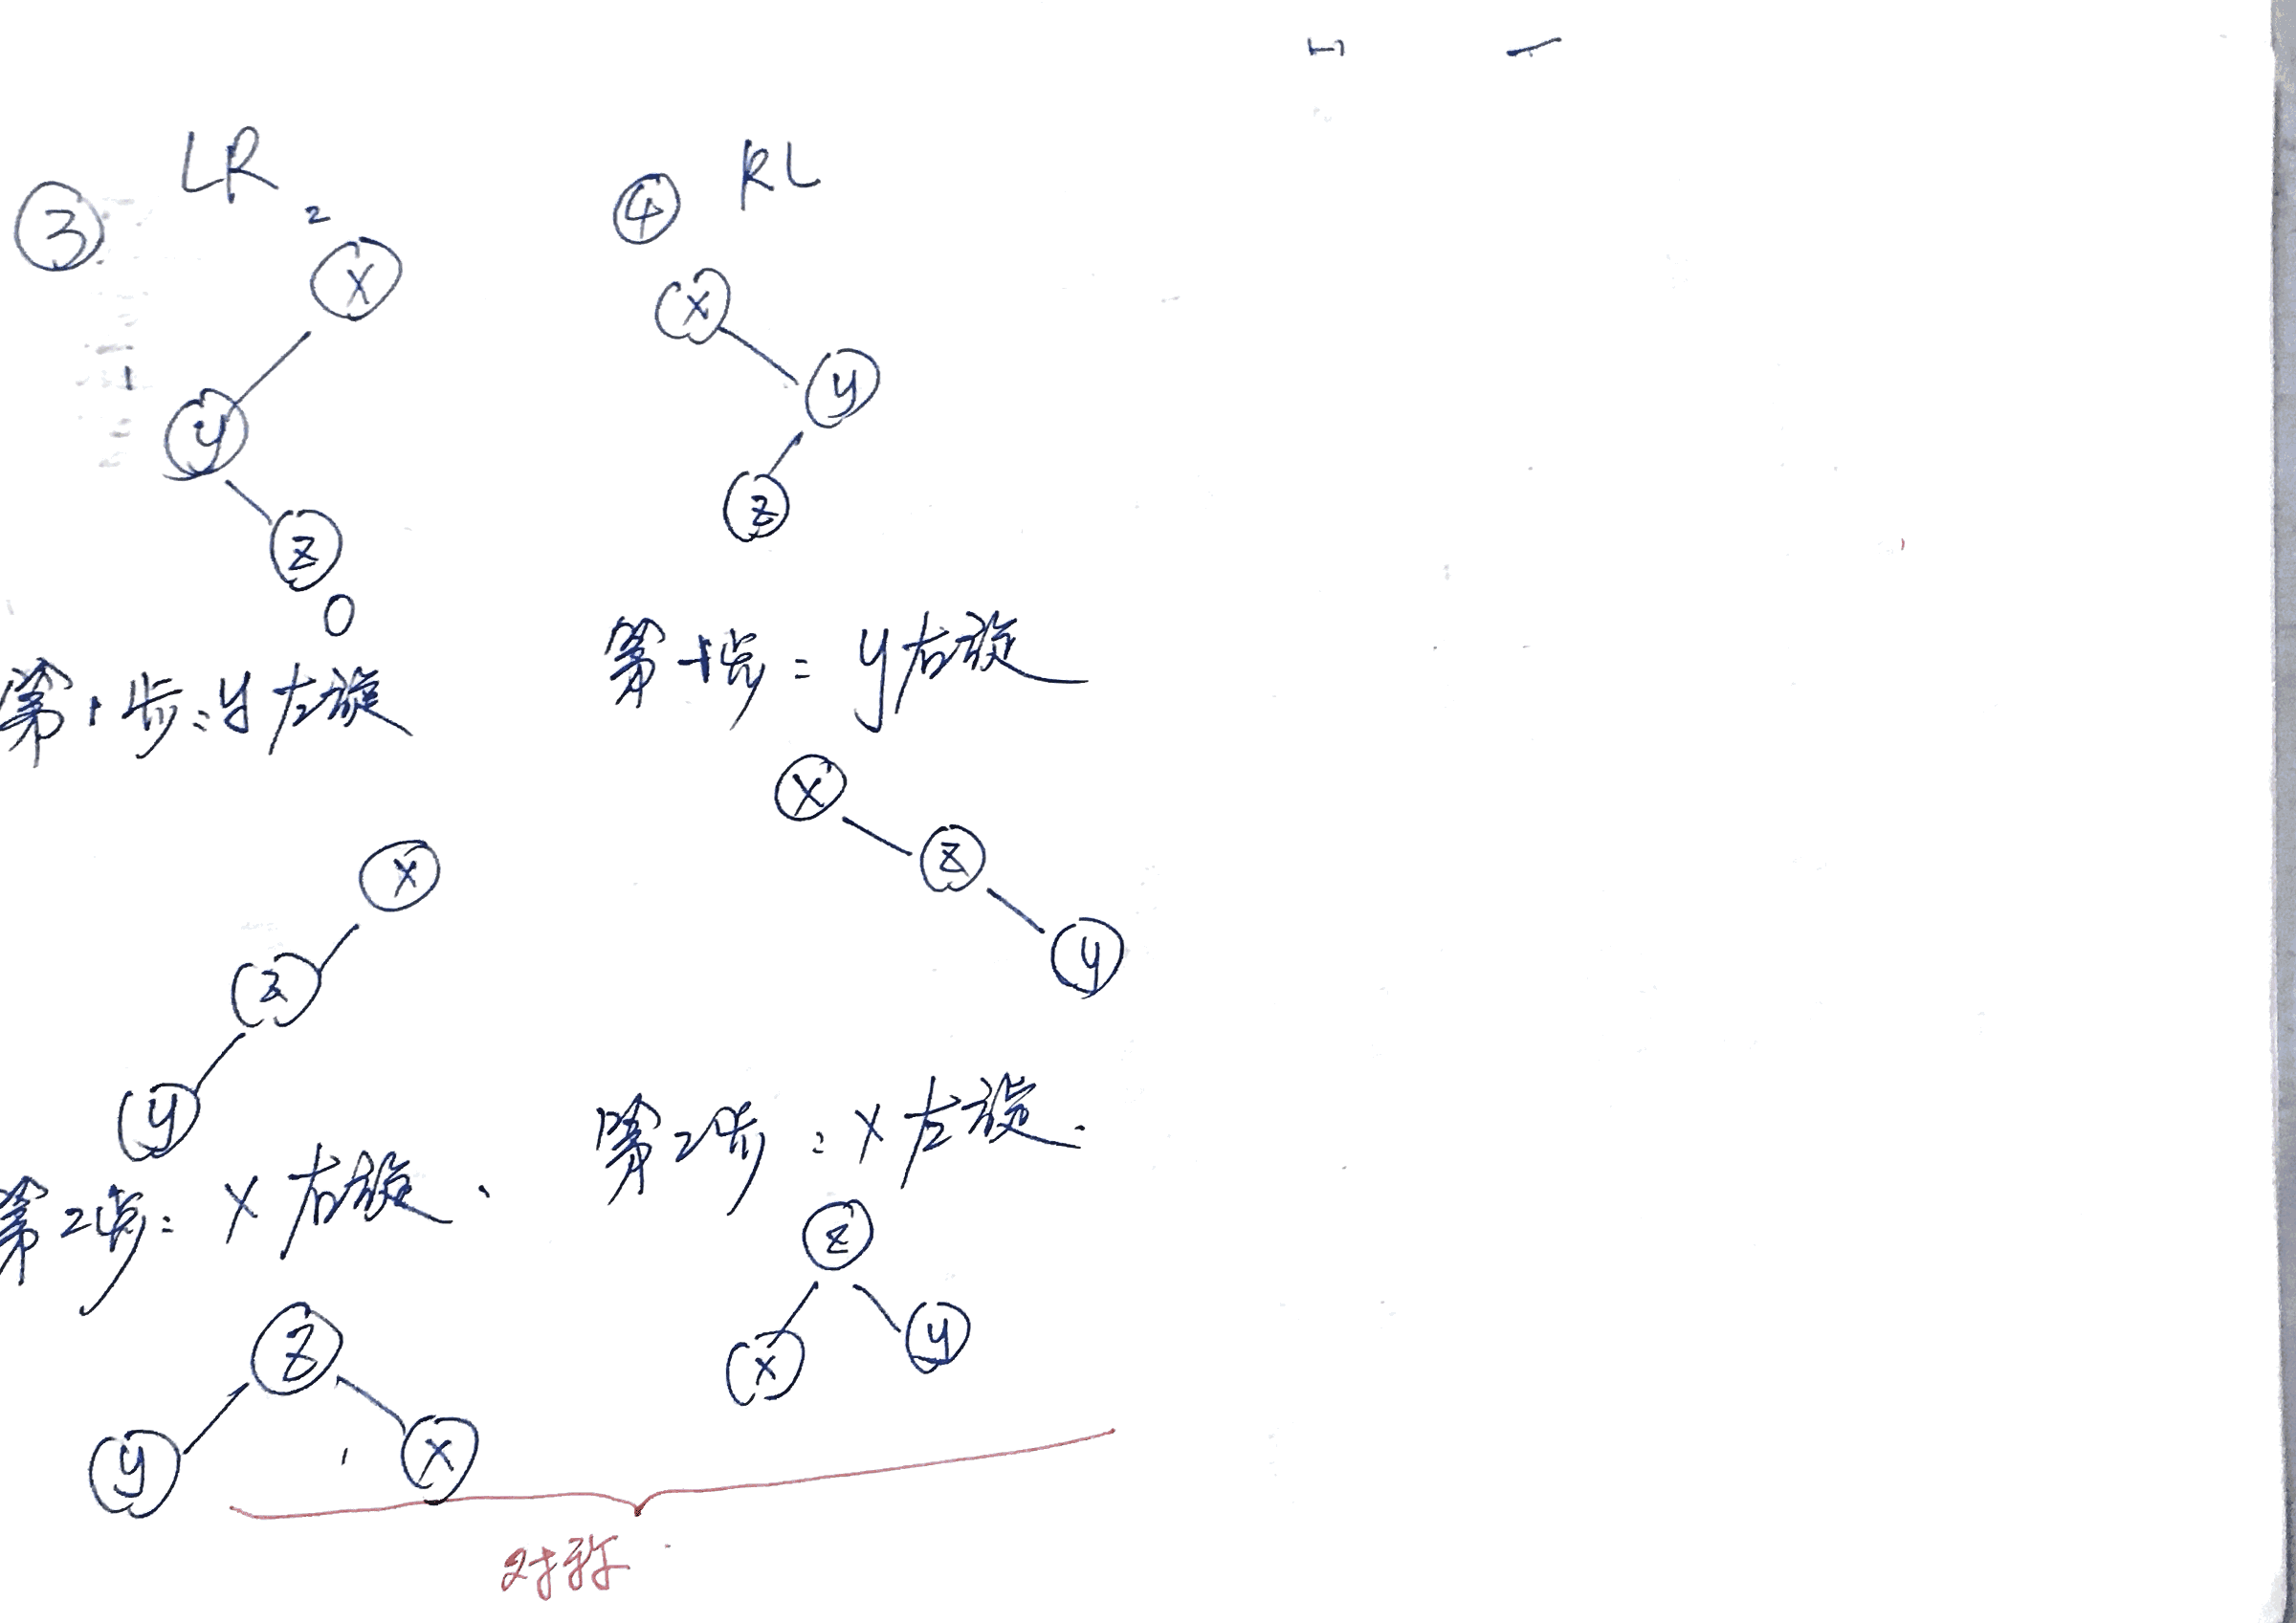 ③ LR
2
X
1
y
z
0
第1步:y左旋
X
z
y
第2步:X右旋.
z
y
X
④ RL
X
y
z
第1步:y右旋
X
z
y
第2步:X左旋.
z
X
y
对称